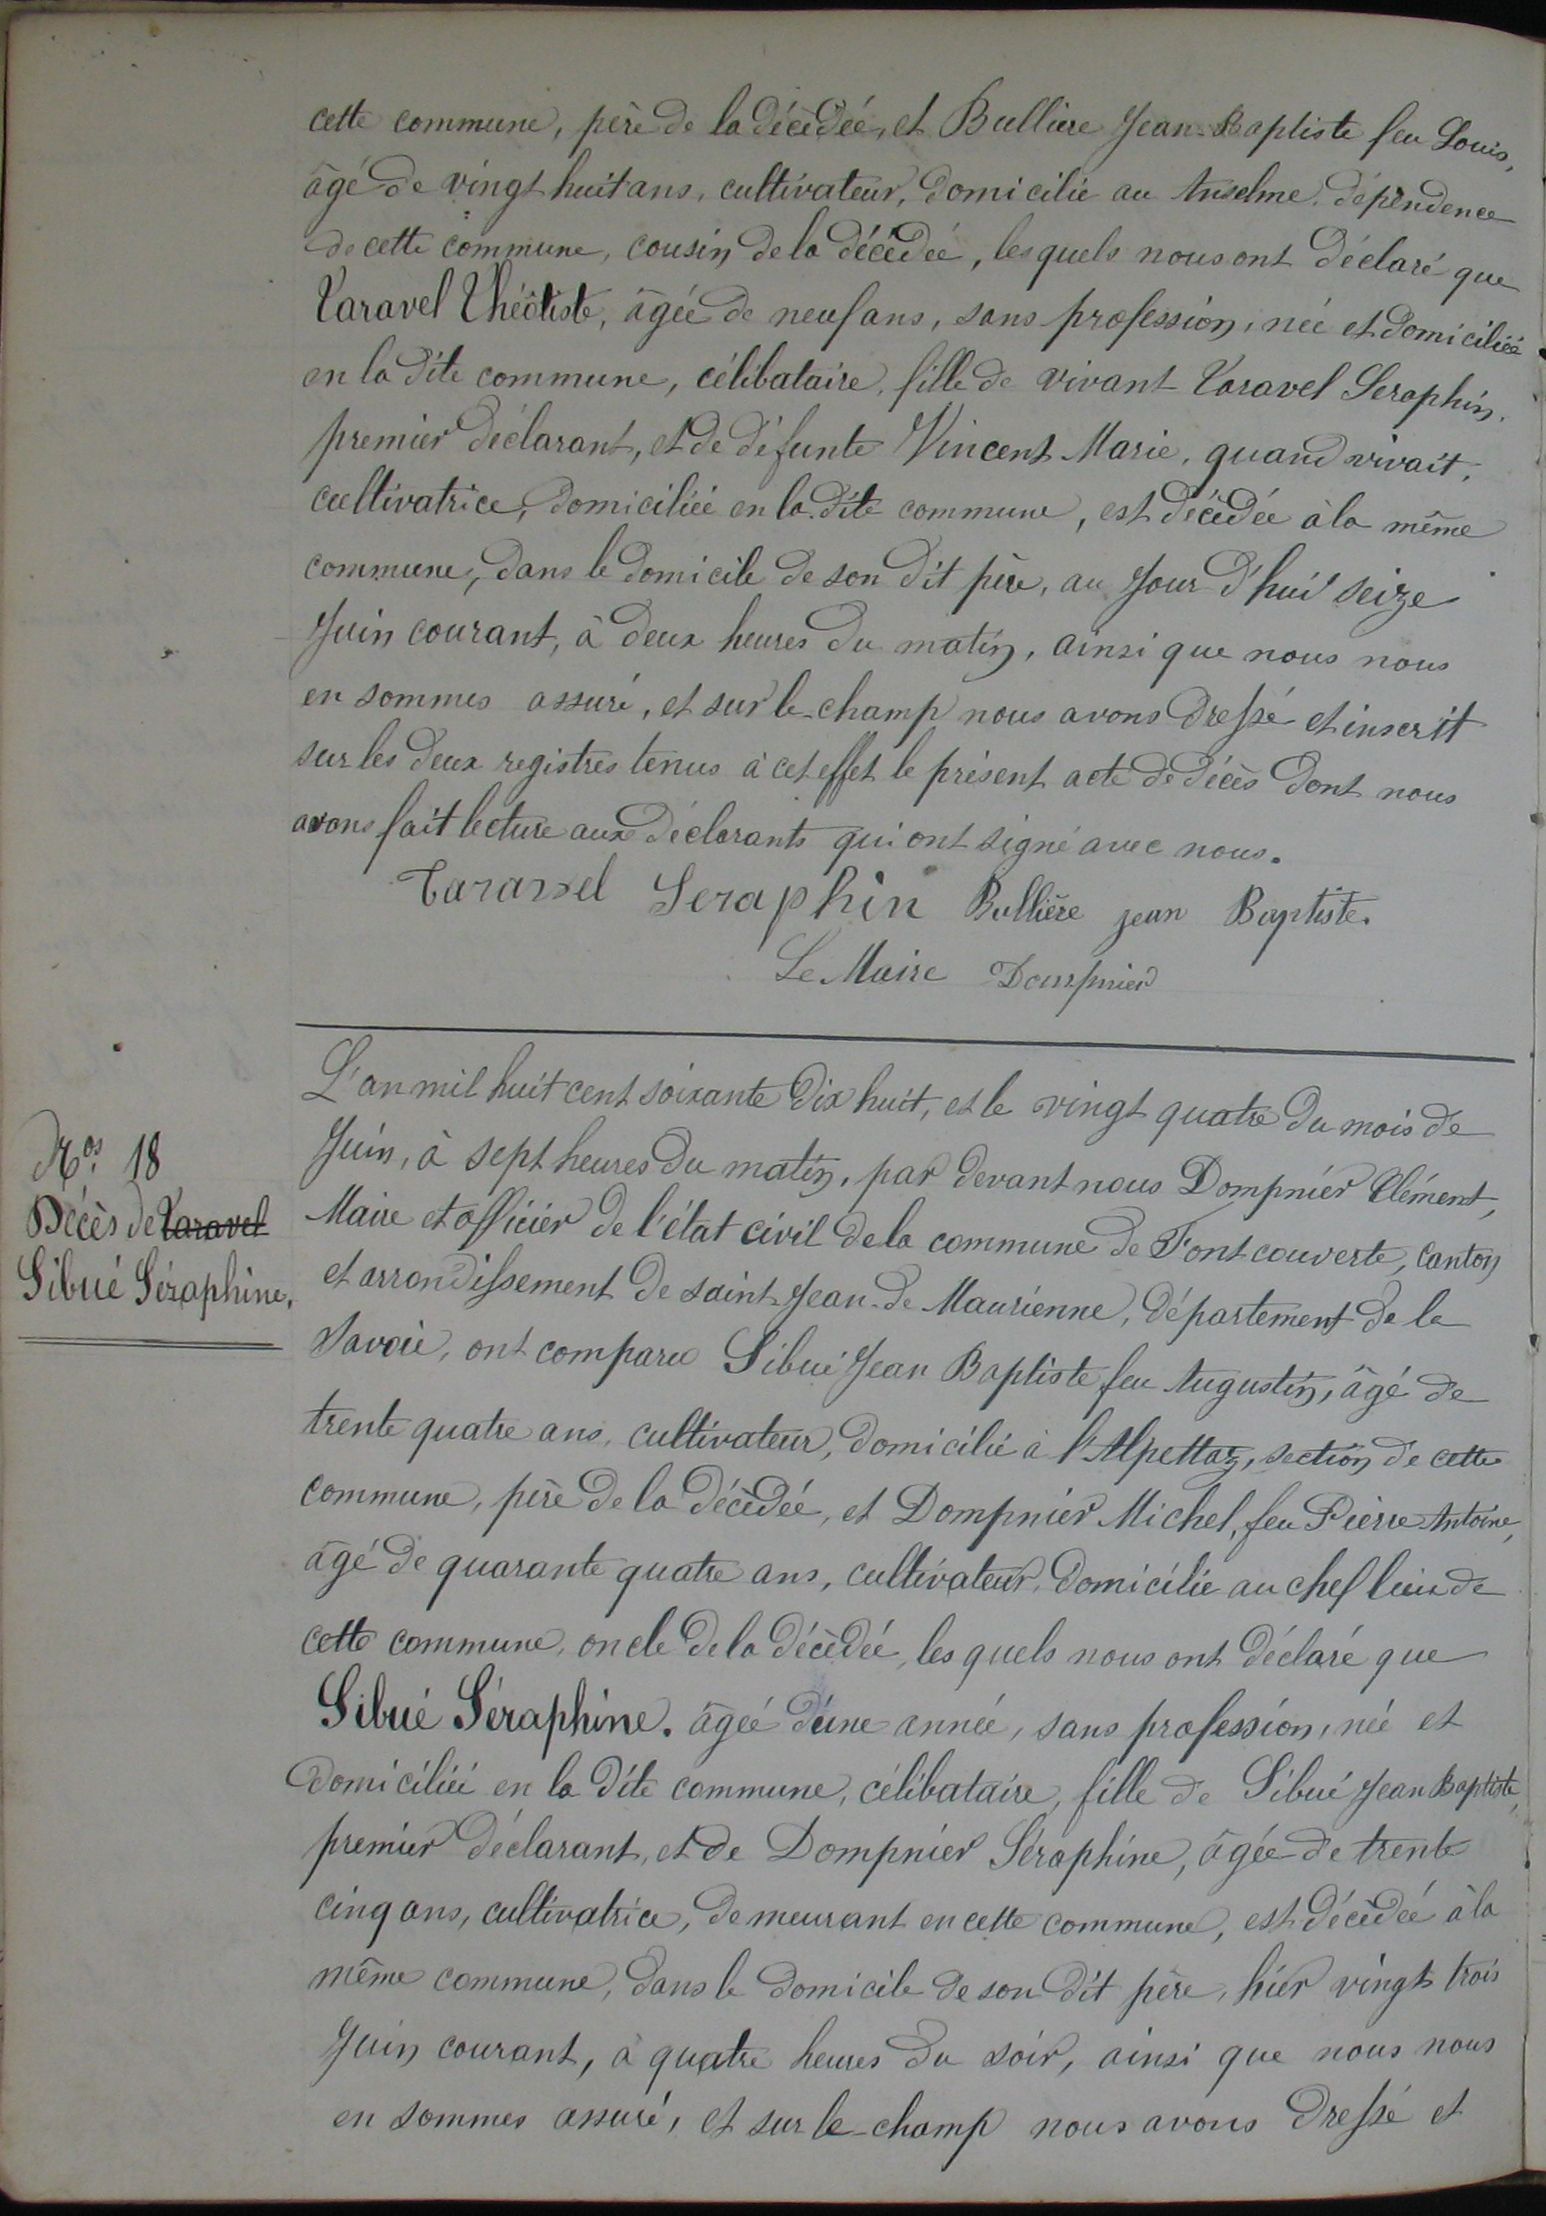 cette commune, père de la décédée, et Bullière Jean-Baptiste feu Louis,
âgé de vingt huit ans, cultivateur, domicilié au Anselme, dépendence
de cette commune, cousin de la décédée, les quels nous ont déclaré que
Taravel Théotiste, âgée de neuf ans, sans profession, née et domiciliée
en la dite commune, célibataire, fille de vivant Taravel Seraphin,
premier déclarant, et de défunte Vincent Marie, quand vivait,
cultivatrice, domiciliée en la dite commune, est décédée à la même
commune, dans le domicile de son dit père, au Jour d'hui seize
Juin courant, à deux heures du matin, ainsi que nous nous
en sommes assuré, et sur le-champ nous avons dressé et inscrit
sur les deux registres tenus à cet effet le présent acte de décès dont nous
avons fait lecture aux déclarants qui ont signé avec nous.
Taravel Seraphin Bullière jean Baptiste.
Le Maire Dompnier
L'an mil huit cent soixante dix huit, et le vingt quatre du mois de
Juin, à sept heures du matin, par devant nous Dompnier Clément,
Maire et officier de l'état civil de la commune de Fontcouverte, canton
et arrondissement de saint-Jean-de Maurienne, département de la
Savoie, ont comparu Sibué Jean Baptiste feu Augustin, âgé de
trente quatre ans, cultivateur, domicilié à l'Alpettaz, section de cette
commune, père de la décédée, et Dompnier Michel, feu Pierre Antoine,
âgé de quarante quatre ans, cultivateur, domicilié au chef lieu de
cette commune, oncle de la décédée, les quels nous ont déclaré que
Sibué Séraphine. âgée d'une année, sans profession, née et
domiciliée en la dite commune, célibataire, fille de Sibué Jean Baptiste,
premier déclarant, et de Dompnier Séraphine, âgée de trente
cinq ans, cultivatrice, demeurant en cette commune, est décédée à la
même commune, dans le domicile de son dit père, hier vingt trois
Juin courant, à quatre heures du soir, ainsi que nous nous
en sommes assuré, et sur le-champ nous avons dressé et
Nos. 18
Décès de Taravel
Sibué Séraphine.